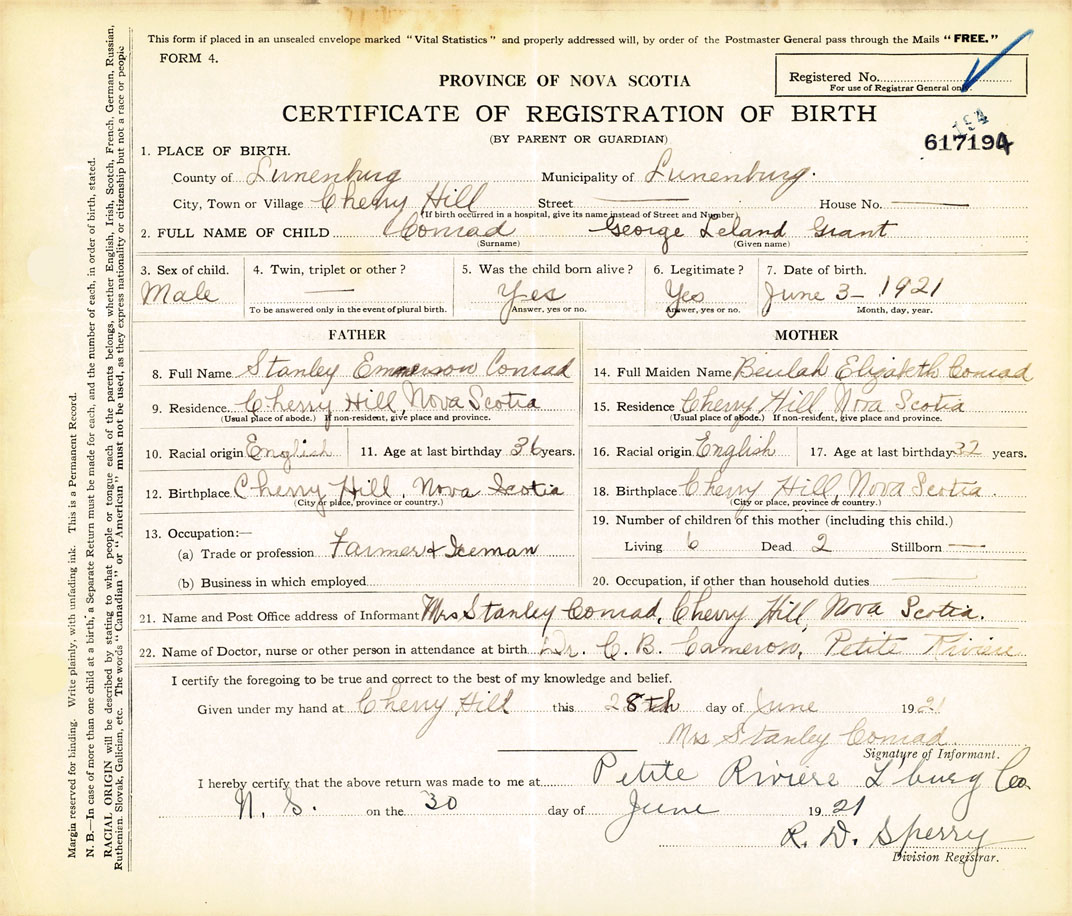 This form if placed in an unsealed envelope marked "Vital Statistics" and properly addressed will, by order of the Postmaster General pass through the Mails "FREE."
FORM 4.
Registered No.
For use of Registrar General only
PROVINCE OF NOVA SCOTIA
CERTIFICATE OF REGISTRATION OF BIRTH
(BY PARENT OR GUARDIAN)
194
617194
1. PLACE OF BIRTH.
County of Lunenburg Municipality of Lunenburg.
City, Town or Village Cherry Hill Street — House No. —
(If birth occurred in a hospital, give its name instead of Street and Number)
2. FULL NAME OF CHILD Conrad George Leland Grant
(Surname) (Given name)
3. Sex of child. 4. Twin, triplet or other? 5. Was the child born alive? 6. Legitimate? 7. Date of birth.
Male — Yes Yes June 3 - 1921
To be answered only in the event of plural birth. Answer, yes or no. Answer, yes or no. Month, day, year.
FATHER
8. Full Name Stanley Emmerson Conrad
9. Residence Cherry Hill, Nova Scotia
(Usual place of abode.) If non-resident, give place and province.
10. Racial origin English 11. Age at last birthday 36 years.
12. Birthplace Cherry Hill, Nova Scotia
(City or place, province or country.)
13. Occupation:—
(a) Trade or profession Farmer & Iceman
(b) Business in which employed
MOTHER
14. Full Maiden Name Beulah Elizabeth Conrad
15. Residence Cherry Hill, Nova Scotia
(Usual place of abode.) If non-resident, give place and province.
16. Racial origin English 17. Age at last birthday 32 years.
18. Birthplace Cherry Hill, Nova Scotia.
(City or place, province or country.)
19. Number of children of this mother (including this child.)
Living 6 Dead 2 Stillborn —
20. Occupation, if other than household duties —
21. Name and Post Office address of Informant Mrs Stanley Conrad, Cherry Hill, Nova Scotia.
22. Name of Doctor, nurse or other person in attendance at birth Dr. C. B. Cameron, Petite Riviere
I certify the foregoing to be true and correct to the best of my knowledge and belief.
Given under my hand at Cherry Hill this 28th day of June 1921
Mrs Stanley Conrad.
Signature of Informant.
I hereby certify that the above return was made to me at Petite Riviere L'burg Co.
N. S. on the 30 day of June 1921
R. D. Sperry
Division Registrar.
Margin reserved for binding. Write plainly, with unfading ink. This is a Permanent Record.
N. B.—In case of more than one child at a birth, a Separate Return must be made for each, and the number of each, in order of birth, stated.
RACIAL ORIGIN will be described by stating to what people or tongue each of the parents belongs, whether English, Irish, Scotch, French, German, Russian,
Ruthenian, Slovak, Galician, etc. The words "Canadian" or "American" must not be used, as they express nationality or citizenship but not a race or people